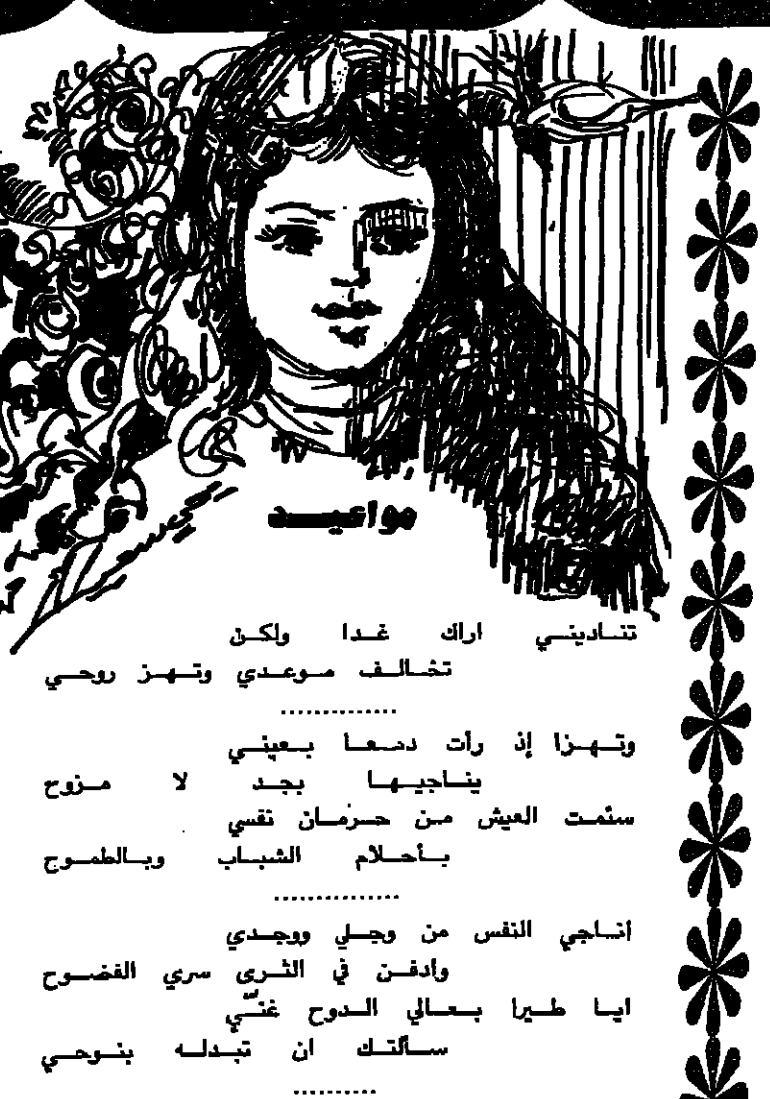 مواعيد
تناديني اراك غدا ولكن
تخالف موعدي وتهز روحي
..............
وتهزا إذ رأت دمعا بعيني
يناجيها بجد لا مزوح
سئمت العيش من حرمان نفسي
بأحلام الشباب وبالطموح
...............
أناجي النفس من وجلي ووجدي
وادفن في الثرى سري الفضوح
ايا طيرا بعالي الدوح غنّي
سألتك ان تبدله بنوحي
..........